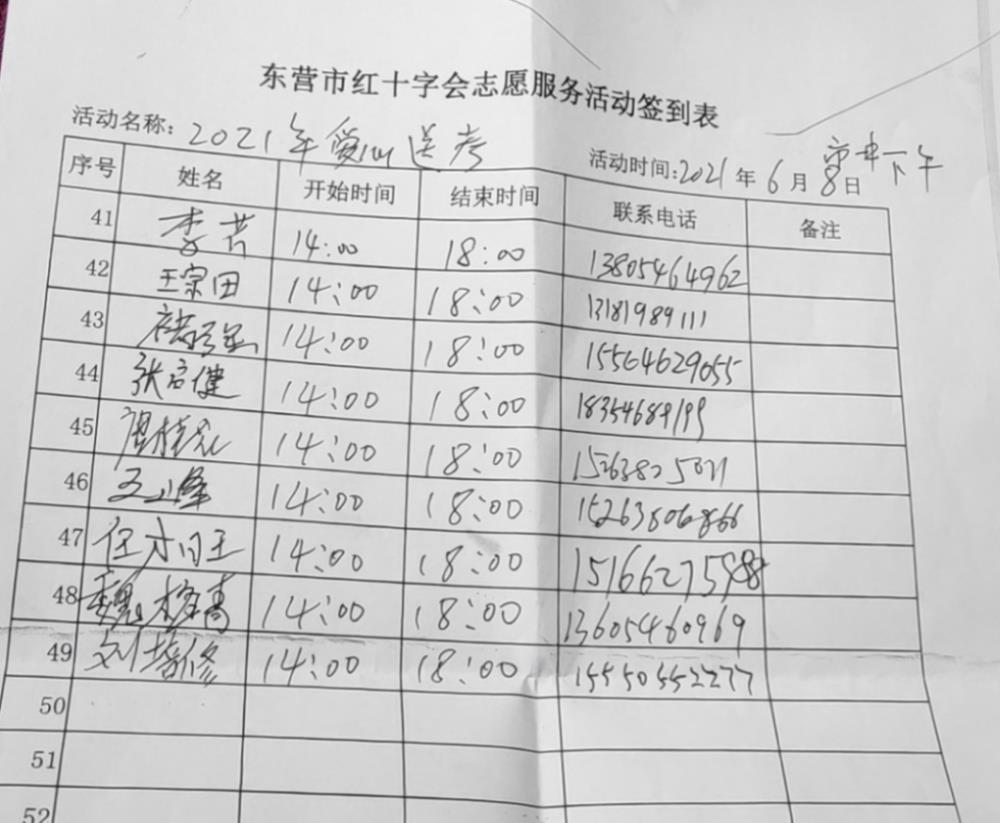 东营市红十字会志愿服务活动签到表
活动名称：2021年爱心送考 活动时间：2021年6月8日 市中下午
序号 姓名 开始时间 结束时间 联系电话 备注
41 李芸 14:00 18:00 13805464962
42 王宗田 14:00 18:00 13181989111
43 14:00 18:00 15564629055
44 张启健 14:00 18:00 18354684199
45 14:00 18:00
46 14:00 18:00 15263806866
47 14:00 18:00
48 14:00 18:00 13605460969
49 刘培修 14:00 18:00 15550552277
50
51
52